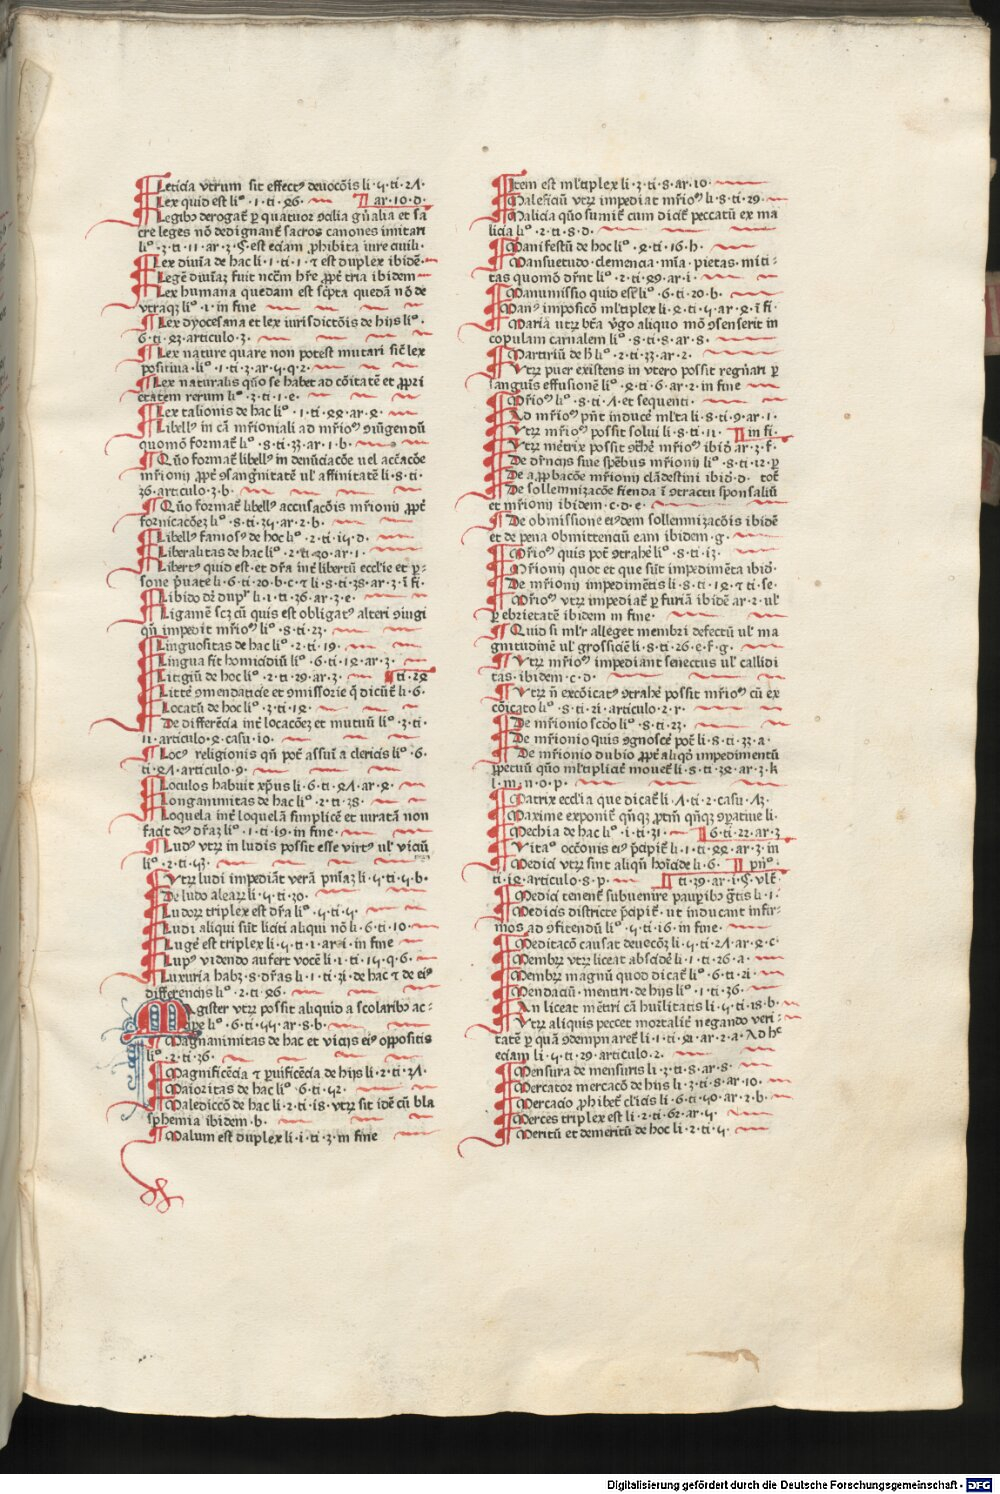 Leticia vtrum sit effectꝰ deuocōis li·५·ti·2Λ·
Lex quid est liº·1·ti·୧6· ¶ ar·10·d·
Legibꝰ derogat̄ ꝑ quatuor ꝯcilia gn̄alia et sa
cre leges nō dedignant̄ sacros canones imitari
liº·3·ti·11·ar·3·Ꞔ·est eciam ꝓhibita iure ciuili·
Lex diuīa de hac li·1·ti·1·⁊ est duplex ibidē·
Legē diuīaꝫ fuit nccm̄ hr̄e ꝓpt̄ tria ibidem
Lex humana quedam est scͥpta quedā nō de
vtraqꝫ liº·1·in fine
Lex dyocesana et lex iurisdictōis de hijs liº·
6·ti·୧3·articulo·3·
Lex nature quare non potest mutari sic̄ lex
positiua·liº·1·ti·3·ar·५·q·2·
Lex naturalis qūo se habet ad cōitatē et ꝓpri
etatem rerum liº·3·ti·1·e·
Lex talionis de hac liº·1·ti·୧୧·ar·୧·
Libellꝰ in cā mr̄ioniali ad mr̄ioꝰ ꝯiūgendū
quomō format̄ liº·8·ti·33·ar·1·b·
Qūo format̄ libellꝰ in denūciacōe uel accͣacōe
mr̄ionij ꝓpt̄ ꝯsangͥnitatē ul' affinitatē li·8·ti·
36·articulo·3·b·
Qūo format̄ libellꝰ accusacōis mr̄ionij ꝓpt̄
fornicacōeꝫ liº·8·ti·3५·ar·2·b·
Libellꝰ famosꝰ de hoc liº·2·ti·1५·d·
Liberalitas de hac liº·2·ti·30·ar·1·
Libertꝰ quid est·et dr̄a int̄ libertū ecclīe et ꝑ-
sone pͥuate li·6·ti·20·b·c·⁊ li·8·ti·38·ar·3·ī fi·
Libido dr̄ dupl'r li·1·ti·36·ar·3·e·
Ligamē scꝫ cū quis est obligatꝰ alteri ꝯiugi
qn̄ impedit mr̄ioꝰ liº·8·ti·23·
Linguositas de hac liº·2·ti·19·
Lingua fit homicidiū liº·6·ti·1୧·ar·3·
Litigiū de hoc liº·2·ti·29·ar·3· ¶ ti·2୧
Litt̄e ꝯmendaticie et ꝯmissorie q̄ dicūt̄ li·6·
Locatū de hoc liº·3·ti·1୧·
De differēcia int̄ locacōeꝫ et mutuū liº·3·ti·
11·articulo·୧·casu·10·
Locꝰ religionis qn̄ pot̄ assuī a clericis liº·6·
ti·୧Λ·articulo·9·
Loculos habuit xp̄us li·6·ti·୧Λ·ar·୧·
Longanimitas de hac liº·2·ti·38·
Loquela int̄ loquelā simplicē et iuratā non
facit deꝰ dr̄aꝫ liº·1·ti·19·in fine
Ludꝰ vtꝝ in ludis possit esse virtꝰ ul' viciū
liº·2·ti·५3·
Vtꝝ ludi impediāt verā pn̄iaꝫ li·५·ti·५·b·
De ludo aleaꝝ li·५·ti·30·
Ludoꝝ triplex est dr̄a liº·५·ti·५·
Ludi aliqui sūt liciti aliqui nō li·6·ti·10·
Lugē est triplex li·५·ti·1·ar·1·in fine
Lupꝰ videndo aufert vocē li·1·ti·1५·q·6·
Luxuria habꝫ·8·dr̄as li·1·ti·21·de hac ⁊ de eiꝰ
differencijs liº·2·ti·୧6·
Magister vtꝝ possit aliquid a scolaribꝰ ac-
cipe liº·6·ti·५५·ar·8·b·
Magnanimitas de hac et vicijs eiꝰ oppositis
liº·2·ti·36·
Magnificēcia ⁊ ꝑuificēcia de hijs li·2·ti·3Λ·
Maioritas de hac liº·6·ti·५2·
Malediccō de hac li·2·ti·18·vtꝝ sit idē cū bla
sphemia ibidem·b·
Malum est duplex li·1·ti·3·in fine
Item est ml'tiplex li·3·ti·8·ar·10·
Maleficiū vtꝝ impediat mr̄ioꝰ li·8·ti·29·
Malicia qūo sumit̄ cum dicit̄ peccatū ex ma
licia liº·2·ti·8·d·
Manifestū de hoc liº·୧·ti·16·h·
Mansuetudo·clemencia·mīa·pietas·miti-
tas quomō dr̄nt liº·2·ti·୧9·ar·1·
Manumissio quid esꝫ liº·6·ti·20·b·
Manꝰ imposicō ml'tiplex li·୧·ti·५·ar·୧·ī fi·
Mariā utꝝ bt̄a vͥgo aliquo mō ꝯsenserit in
copulam carnalem liº·8·ti·8·ar·8·
Martiriū de h liº·2·ti·33·ar·2·
Vtꝝ puer existens in vtero possit regn̄ari ꝑ
sanguīs effusionē liº·୧·ti·6·ar·2·in fine
Mr̄ioꝰ liº·8·ti·Λ·et sequenti·
Ad mr̄ioꝰ pn̄t induce ml'ta li·8·ti·9·ar·1·
Vtꝝ mr̄ioꝰ possit solui li·8·ti·11· ¶ in fi·
Vtꝝ metrix possit ꝯthē mr̄ioꝰ ibid̄ ar·3·f·
De dr̄ncijs siue spēbus mr̄ionij liº·8·ti·12·ꝑ
De aꝓbacōe mr̄ionij clādestini ibid̄·d· tot̄
De sollemnizacōe fienda ī ꝯtractu sponsaliū
et mr̄ionij ibidem·c·d·e·
De obmissione eiꝰdem sollemnizacōis ibidē
et de pena obmittenciū eam ibidem·g·
Mr̄ioꝰ quis pot̄ ꝯtrahē liº·8·ti·13·
Mr̄ionij quot et que sūt impedimēta ibid̄·
De mr̄ionij impedimētis li·8·ti·1୧·⁊ ti·se·
Mr̄ioꝰ vtꝝ impediat̄ ꝑ furiā ibidē ar·2·ul'
ꝑ ebrietatē ibidem in fine·
Quid si ml'r alleget membri defectū ul' ma
gnitudinē ul' grossiciē li·8·ti·26·e·f·g·
Vtꝝ mr̄ioꝰ impediant senectus ul' callidi
tas·ibidem·c·d·
Vtꝝ n̄ excōicatꝰ ꝯtrahē possit mr̄ioꝰ cū ex
cōicato liº·8·ti·21·articulo·2·r·
De mr̄ionio scd̄o liº·8·ti·23·
De mr̄ionio quis ꝯgnoscē pot̄ li·8·ti·33·a·
De mr̄ionio dubio ꝓpt̄ aliqd̄ impedimentū
ꝑpetuū qūo ml'tiplicit̄ mouet̄ li·8·ti·3୧·ar·3·k
l·m·n·o·p·
Matrix eccl'ia que dicat̄ li·Λ·ti·2·casu·Λ3·
Maxime exponit̄ qn̄qꝫ ꝓtm̄ qn̄qꝫ ꝯꝑatiue li·
Mechia de hac liº·1·ti·31· ¶ 6·ti·22·ar·3
Vitaꝰ occōnis eiꝰ pͥcipit̄ li·1·ti·୧୧·ar·3·in
Medici vtꝝ sint aliqn̄ ho'icide li·6· ¶ pn̄º·
ti·1୧·articulo·8·p· ¶ ti·29·ar·1·Ꞔ·vlt̄·
Medici tenent̄ subuenire pauꝑibꝰ gͣtis li·1·
Medicis districte pͥcipit̄·ut inducant infir-
mos ad ꝯfitendū liº·५·ti·16·in fine·
Meditacō causat deuocōꝫ li·५·ti·2Λ·ar·୧·c·
Membꝝ vtꝝ liceat abscidē li·1·ti·26·a·
Membꝝ magnū quod dicat̄ liº·6·ti·21·
Mendaciū·mentiri·de hijs liº·1·ti·36·
An liceat mētiri cā hūilitatis li·५·ti·18·b·
Vtꝝ aliquis peccet mortalit̄ negando veri-
tatē ꝑ quā ꝯdempnaret̄ li·1·ti·୧1·ar·2·a·Ad hᶜ
eciam li·५·ti·29·articulo·2·
Mensura de mensuris li·3·ti·8·ar·8·
Mercator mercacō de hijs li·3·ti·8·ar·10·
Mercacio ꝓhibet̄ cl'icis li·6·ti·५0·ar·2·b·
Merces triplex est li·2·ti·62·ar·५·
Meritū et demeritū de hoc li·2·ti·५·
Digitalisierung gefördert durch die Deutsche Forschungsgemeinschaft - DFG